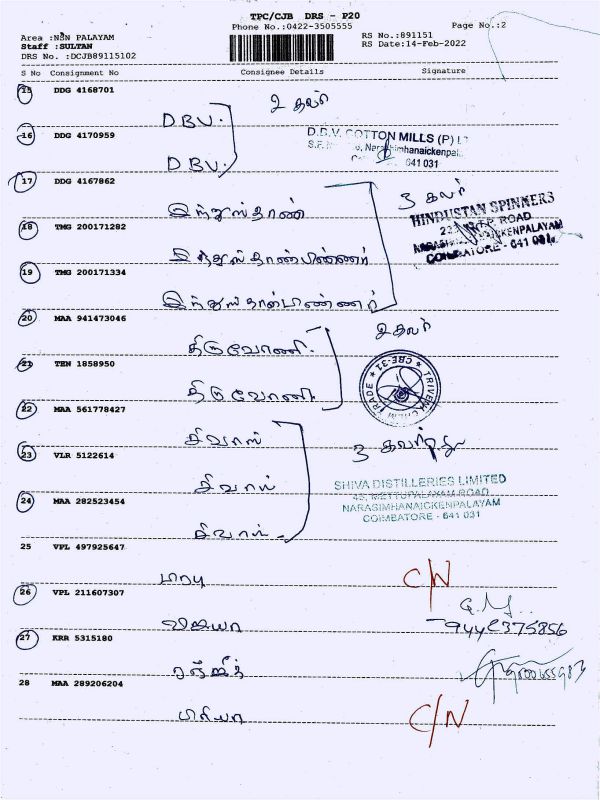 TPC/CJB DRS - P20
Phone No.:0422-3505555
Page No.:2
Area :NSN PALAYAM
Staff :SULTAN
DRS No. :DCJB89115102
RS No.:891151
RS Date:14-Feb-2022
S No Consignment No Consignee Details Signature
15 DDG 4168701
D.B.V. 2 கவர்
16 DDG 4170959
D.B.V. COTTON MILLS (P)
641 031
D.B.V.
17 DDG 4167862
3 கவர்
இந்துஸ்தான்
HINDUSTAN SPINNERS
ROAD
18 TMG 200171282
COIMBATORE - 641 031
இந்துஸ்தான்
19 TMG 200171334
இந்துஸ்தான்
20 MAA 941473046
2 கவர்
திருவோணி
21 TEN 1858950
CBE-31
திருவோணி
22 MAA 561778427
சிவாஸ்
3 கவர்
23 VLR 5122614
சிவாஸ்
SHIVA DISTILLERIES LIMITED
METTUPALAYAM ROAD
NARASIMHANAICKENPALAYAM
COIMBATORE - 641 031
24 MAA 282523454
சிவாஸ்
25 VPL 497925647
C/N
26 VPL 211607307
விஜயா
9442375856
27 KRR 5315180
ரஞ்ஜித்
28 MAA 289206204
பிரியா C/N